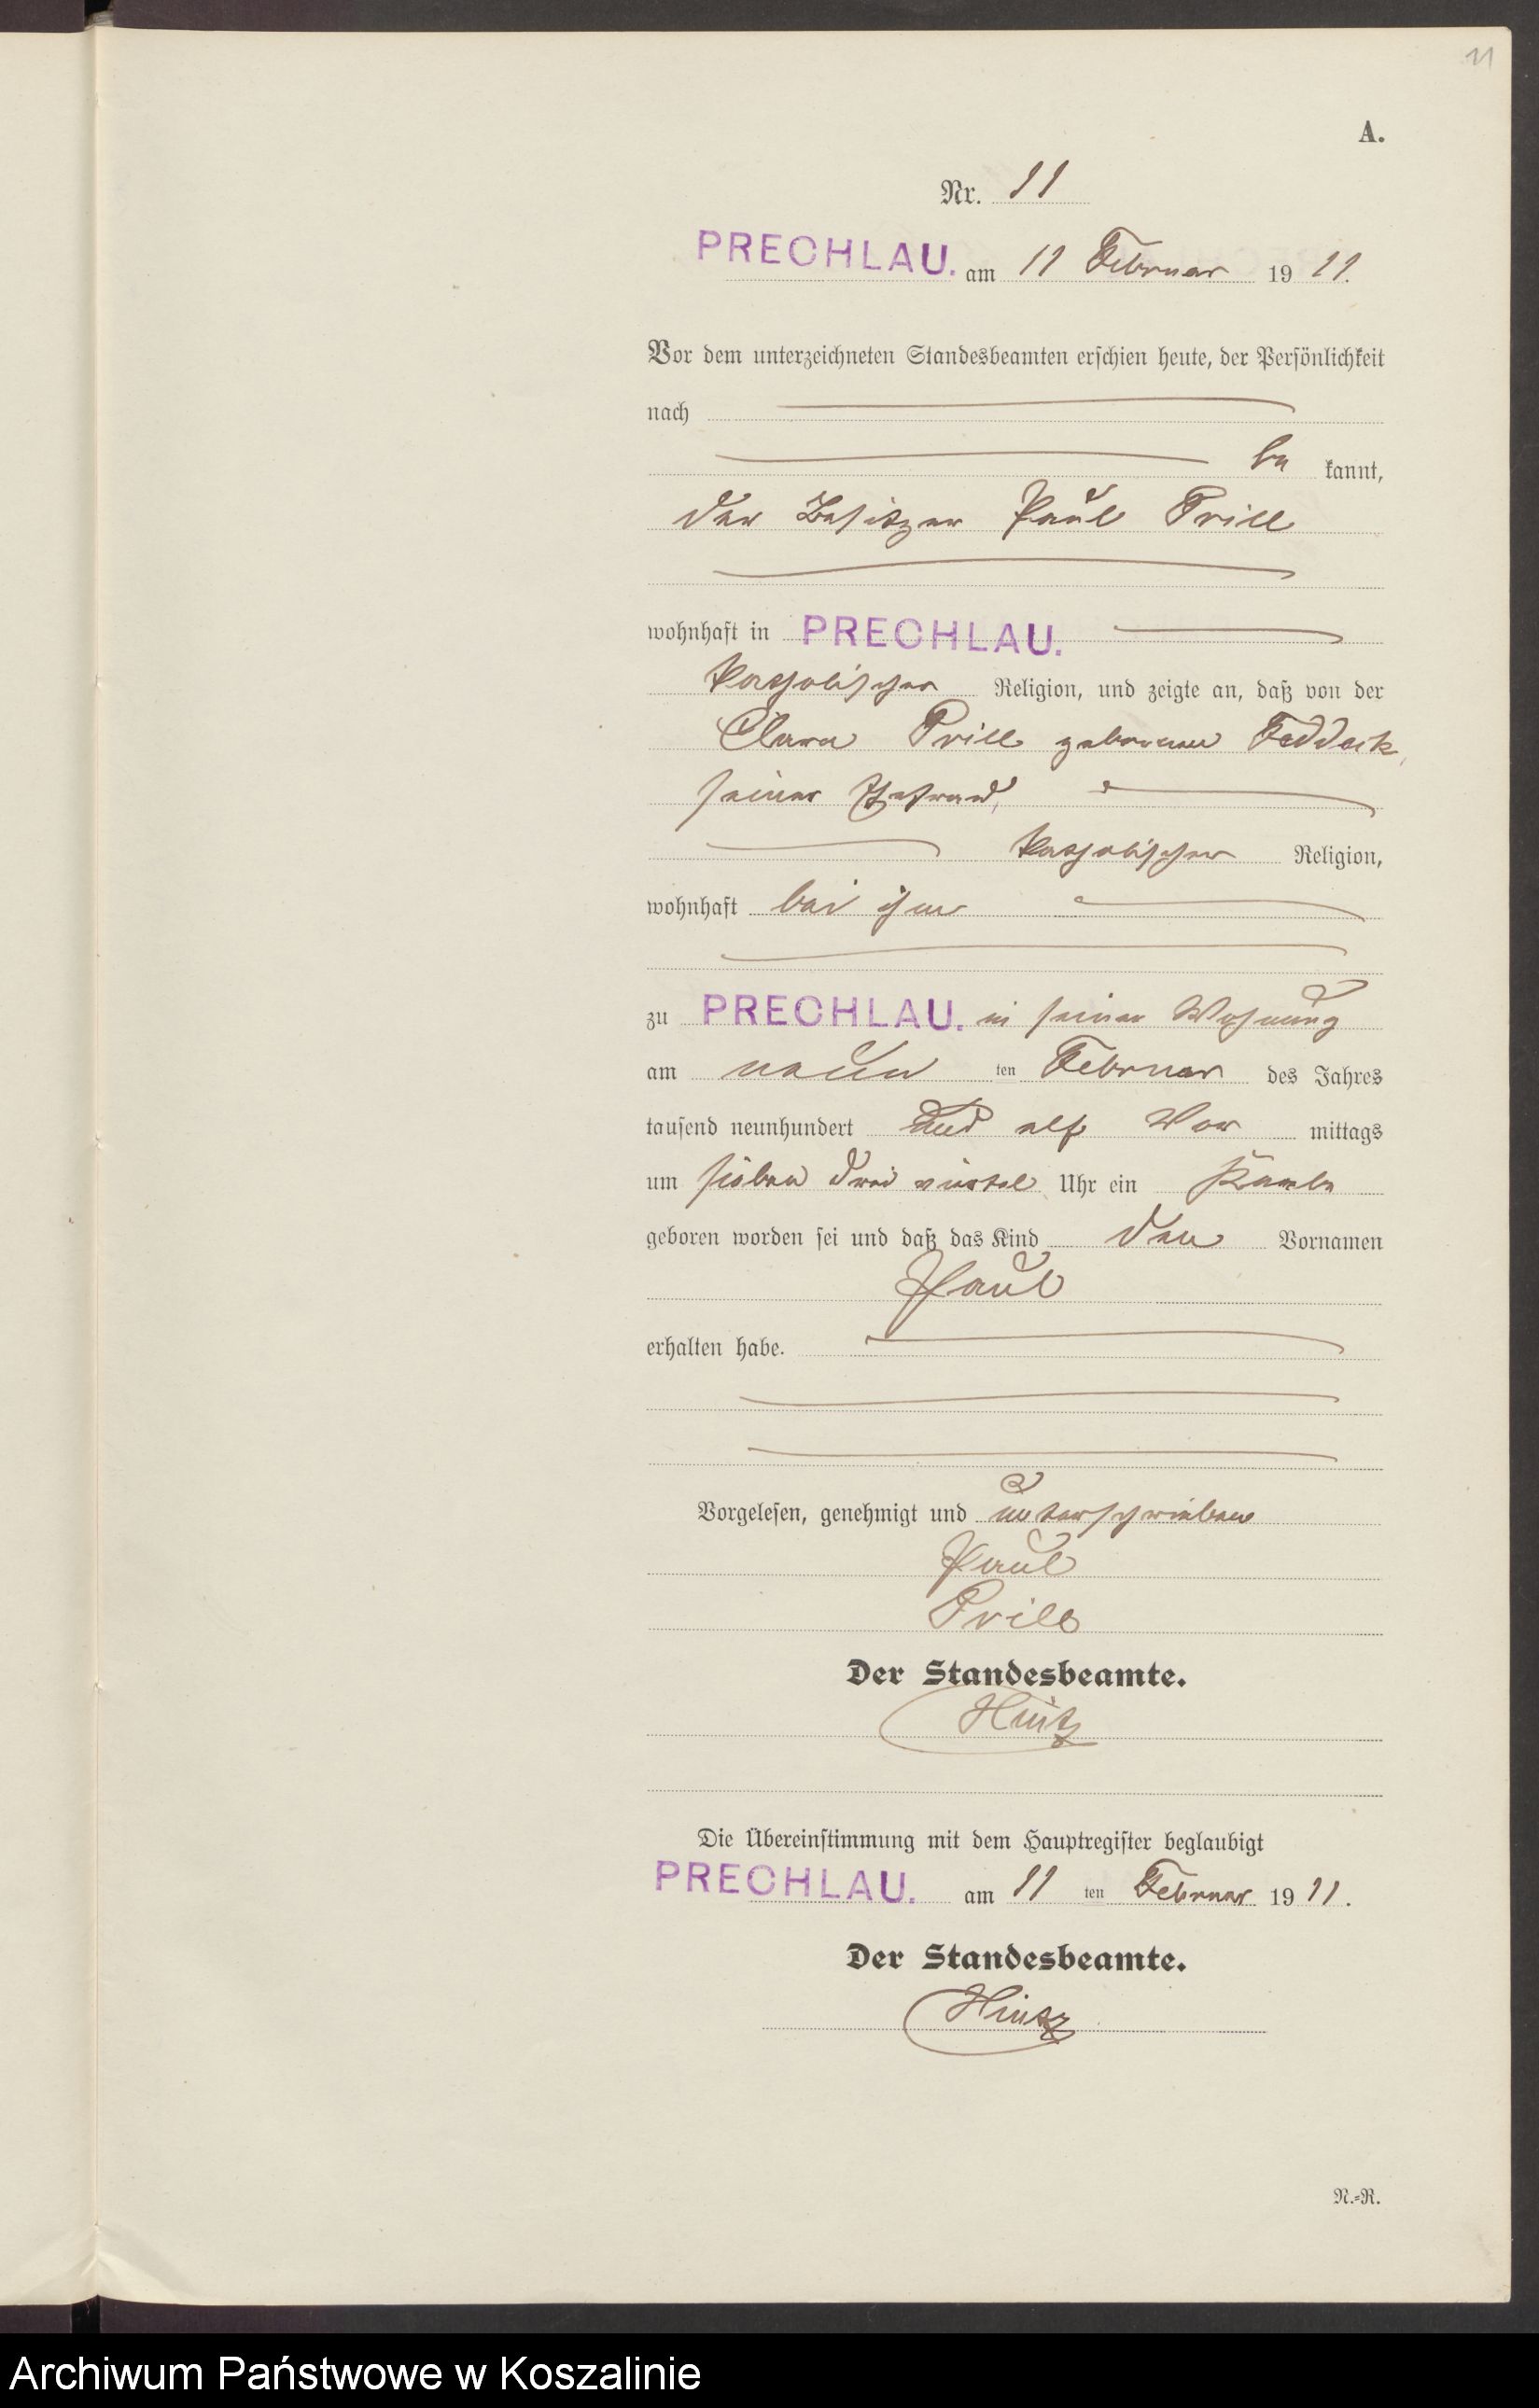 11
A.
Nr. 11
PRECHLAU. am 11 Februar 1911.
Vor dem unterzeichneten Standesbeamten erschien heute, der Persönlichkeit
nach
be kannt,
der Besitzer Paul Prill
wohnhaft in PRECHLAU.
katholischer Religion, und zeigte an, daß von der
Clara Prill geborenen Feddeck,
seiner Ehefrau,
katholischer Religion,
wohnhaft bei ihm
zu PRECHLAU. in seiner Wohnung
am neun ten Februar des Jahres
tausend neunhundert und elf Vor mittags
um sieben drei viertel Uhr ein Knabe
geboren worden sei und daß das Kind den Vornamen
Paul
erhalten habe.
Vorgelesen, genehmigt und unterschrieben
Paul
Prill
Der Standesbeamte.
Hintz
Die Übereinstimmung mit dem Hauptregister beglaubigt
PRECHLAU. am 11 ten Februar 1911.
Der Standesbeamte.
Hintz
N.=R.
Archiwum Państwowe w Koszalinie